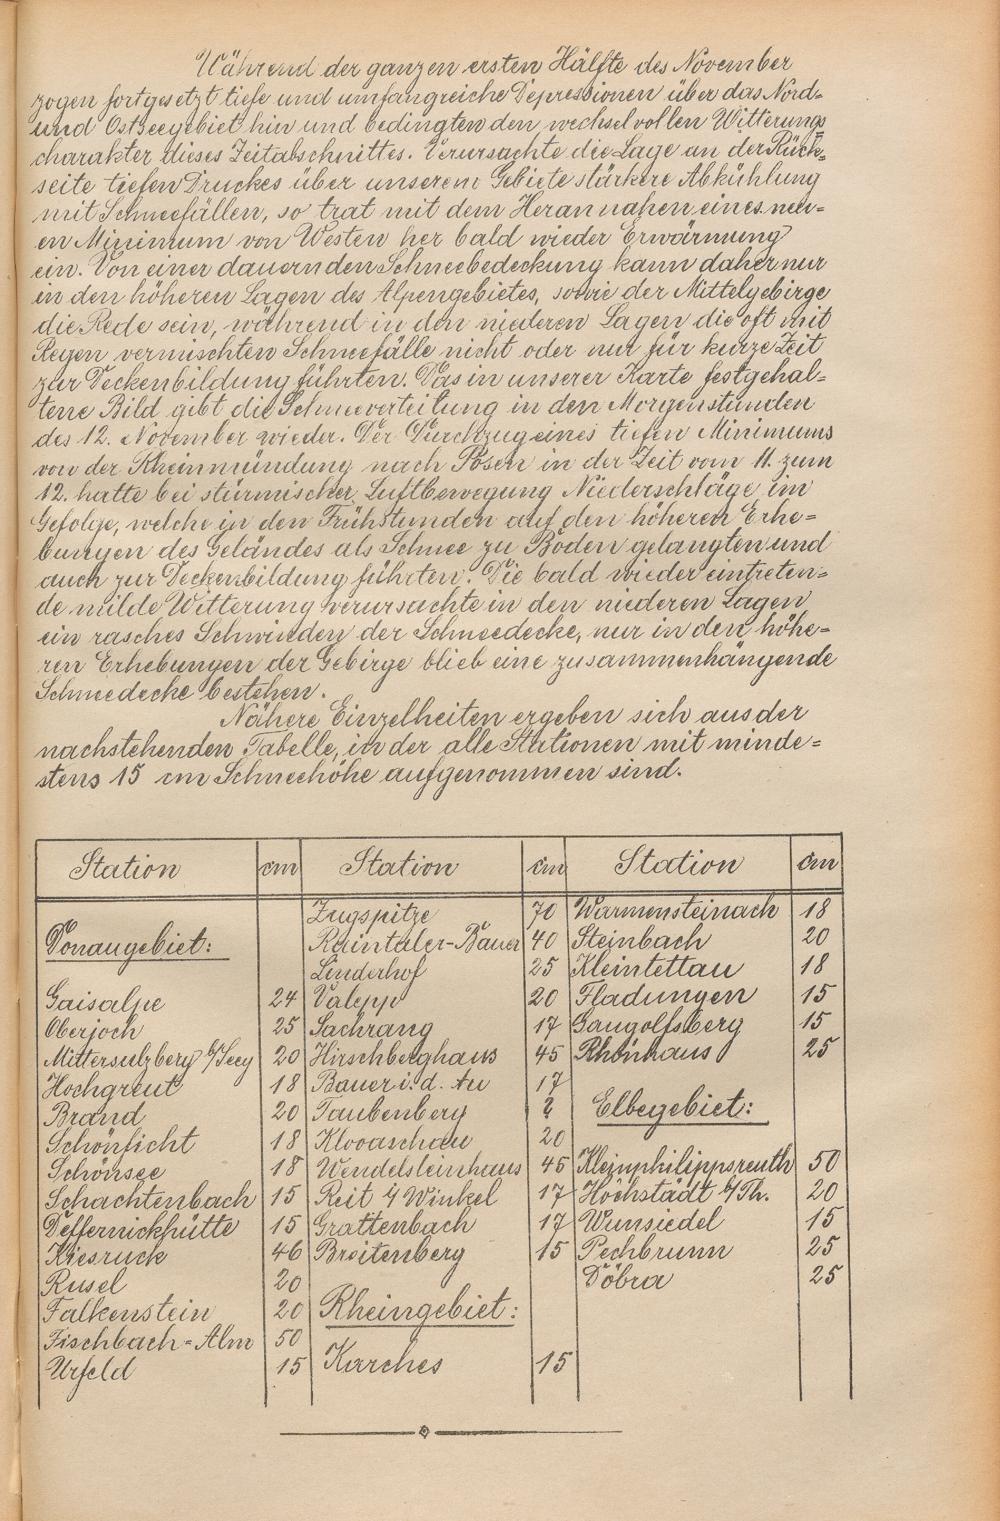 Während der ganzen ersten Hälfte des November
zogen fortgesetzt tiefe und umfangreiche Depressionen über das Nord-
und Ostseegebiet hin und bedingten den wechselvollen Witterungs-
charakter dieses Zeitabschnittes. Verursachte die Lage an der Rück-
seite tiefen Druckes über unserem Gebiete stärkere Abkühlung
mit Schneefällen, so trat mit dem Herannahen eines neu-
en Minimum von Westen her bald wieder Erwärmung
ein. Von einer dauernden Schneebedeckung kann daher nur
in den höheren Lagen des Alpengebietes, sowie der Mittelgebirge
die Rede sein, während in den niederen Lagen die oft mit
Regen vermischten Schneefälle nicht oder nur für kurze Zeit
zur Deckenbildung führten. Das in unserer Karte festgehal-
tene Bild gibt die Schneeverteilung in den Morgenstunden
des 12. November wieder. Der Durchzug eines tiefen Minimums
von der Rheinmündung nach Posen in der Zeit vom 11. zum
12. hatte bei stürmischer Luftbewegung Niederschläge im
Gefolge, welche in den Frühstunden auf den höheren Erhe-
bungen des Geländes als Schnee zu Boden gelangten und
auch zur Deckenbildung führten. Die bald wieder eintreten-
de milde Witterung verursachte in den niederen Lagen
ein rasches Schwinden der Schneedecke, nur in den höhe-
ren Erhebungen der Gebirge blieb eine zusammenhängende
Schneedecke bestehen.
Nähere Einzelheiten ergeben sich aus der
nachstehenden Tabelle, in der alle Stationen mit minde-
stens 15 cm Schneehöhe aufgenommen sind.
Station cm Station cm Station cm
Donaugebiet:
Gaisalpe 24
Oberjoch 25
Mittersulzberg b/Seeg 20
Hochgreut 18
Brand 20
Schönficht 18
Schönsee 18
Schachtenbach 15
Deffernickhütte 15
Kiesruck 46
Rusel 20
Falkenstein 20
Fischbach-Alm 50
Urfeld 15
Zugspitze 70
Raintaler-Bauer 40
Linderhof 25
Valepp 20
Sachrang 17
Hirschberghaus 45
Bauer i. d. Au 17
Taubenberg ?
Klooaschau 20
Wendelsteinhaus 45
Reit i/Winkel 17
Grattenbach 17
Breitenberg 15
Rheingebiet:
Karches 15
Warmensteinach 18
Steinbach 20
Kleintettau 18
Fladungen 15
Gangolfsberg 15
Rhönhaus 25
Elbegebiet:
Kleinphilippsreuth 50
Höchstädt b/Th. 20
Wunsiedel 15
Pechbrunn 25
Döbra 25